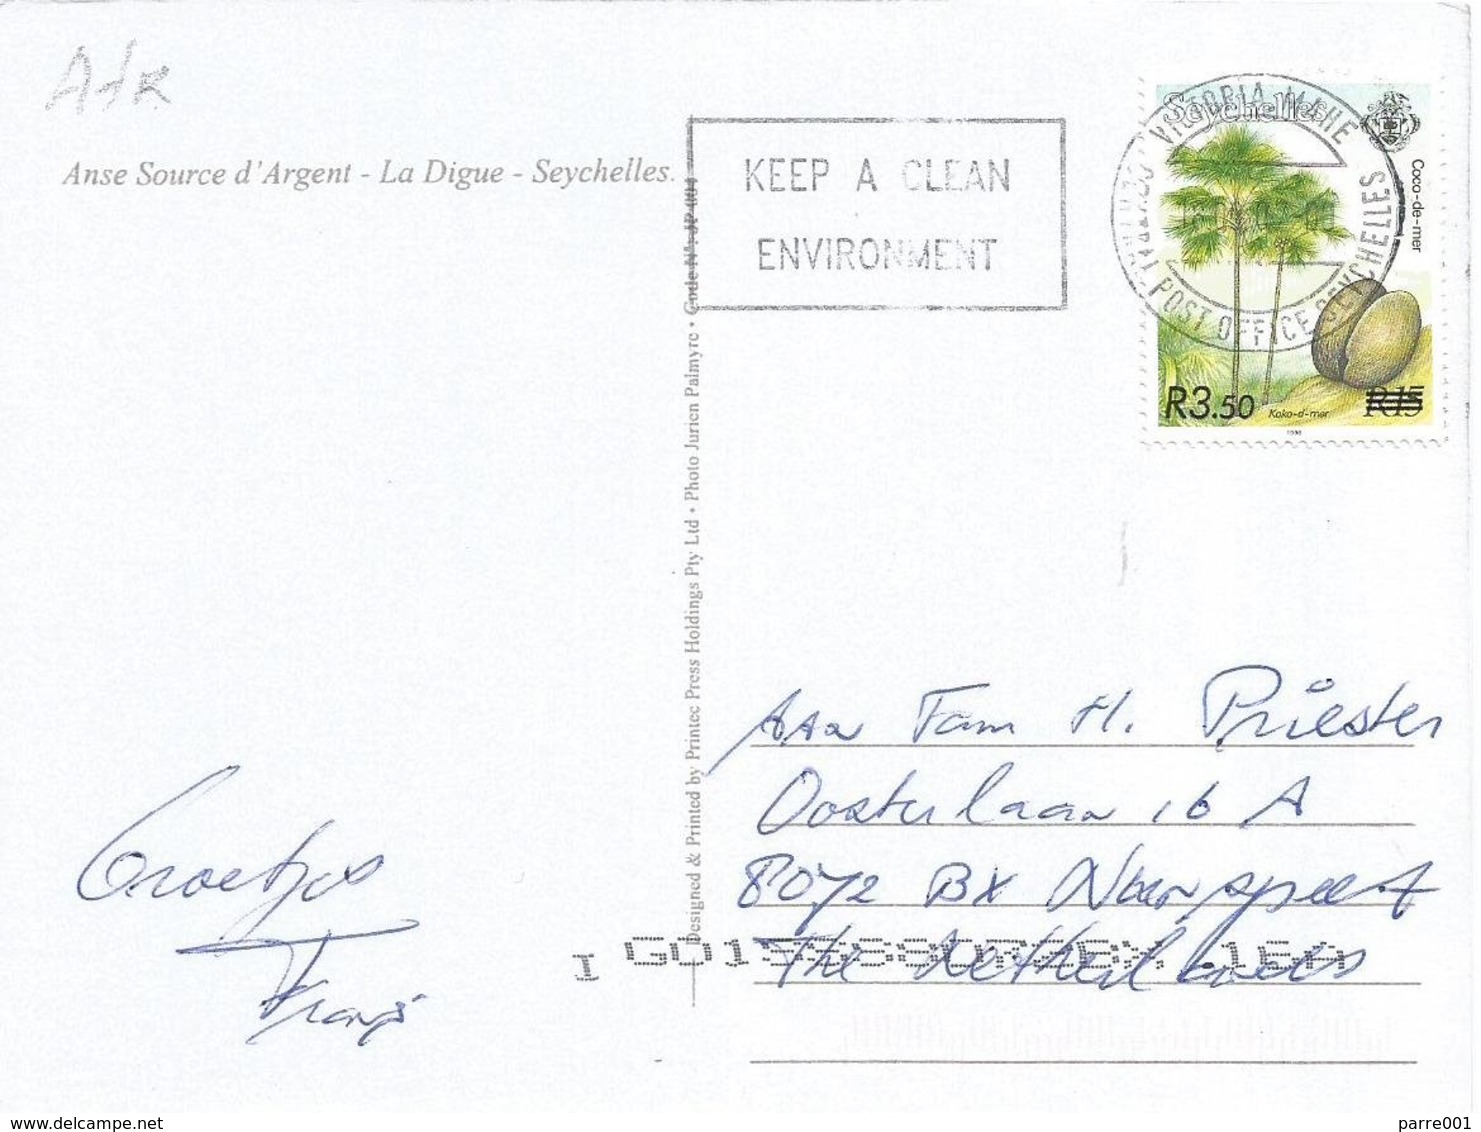 Afr
Anse Source d'Argent - La Digue - Seychelles.
KEEP A CLEAN
ENVIRONMENT
VICTORIA MAHE
POST OFFICE SEYCHELLES
Seychelles
Coco-de-mer
R3.50
Koko-d-mer
R15
1996
Designed & Printed by Printec Press Holdings Pty Ltd • Photo Jurien Palmyre • Code Nº: JP 004
Aan Fam H. Priester
Oosterlaan 16 A
8072 BX Nunspeet
The Netherlands
Groetjes
parre001